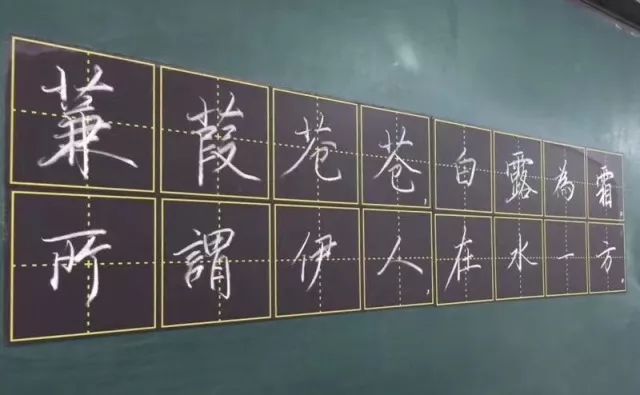 蒹葭苍苍,白露為霜。
所謂伊人,在水一方。